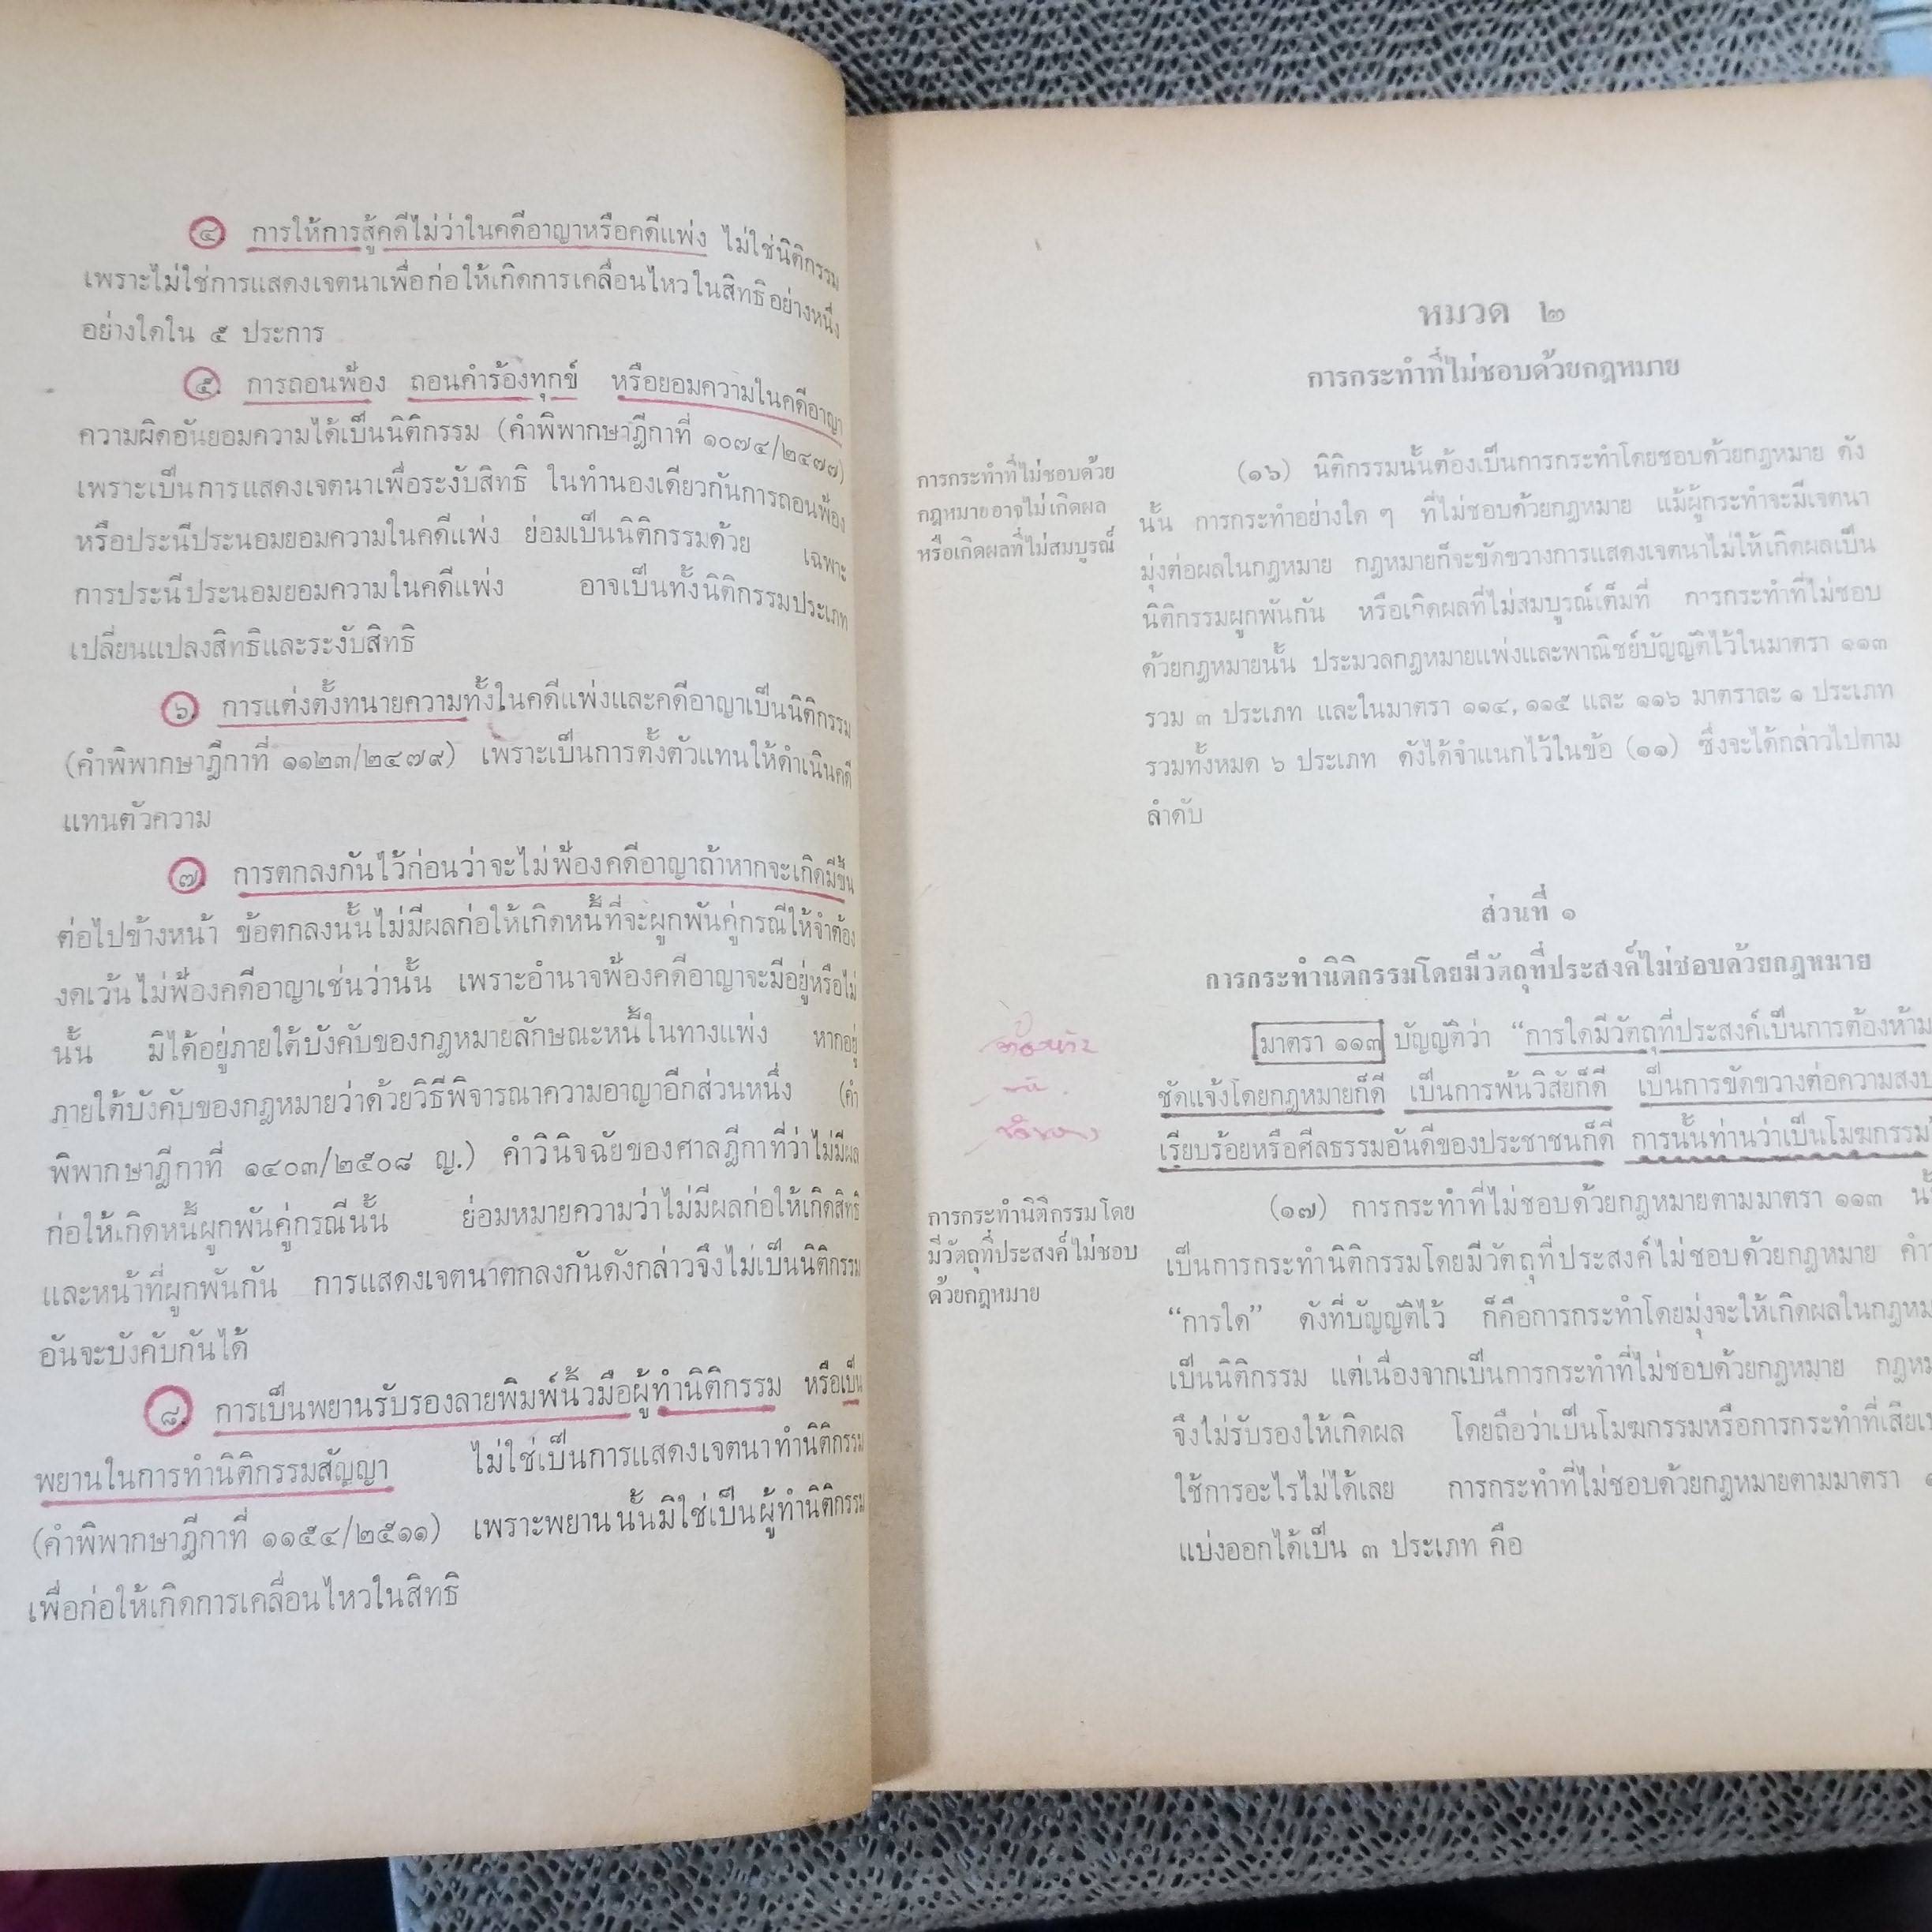 ๔. การให้การสู้คดีไม่ว่าในคดีอาญาหรือคดีแพ่ง ไม่ใช่นิติกรรม
เพราะไม่ใช่การแสดงเจตนาเพื่อก่อให้เกิดการเคลื่อนไหวในสิทธิอย่างหนึ่ง
อย่างใดใน ๕ ประการ
๕. การถอนฟ้อง ถอนคำร้องทุกข์ หรือยอมความในคดีอาญา
ความผิดอันยอมความได้เป็นนิติกรรม (คำพิพากษาฎีกาที่ ๑๐๗๔/๒๔๗๗)
เพราะเป็นการแสดงเจตนาเพื่อระงับสิทธิ ในทำนองเดียวกันการถอนฟ้อง
หรือประนีประนอมยอมความในคดีแพ่ง ย่อมเป็นนิติกรรมด้วย เฉพาะ
การประนีประนอมยอมความในคดีแพ่ง อาจเป็นทั้งนิติกรรมประเภท
เปลี่ยนแปลงสิทธิและระงับสิทธิ
๖. การแต่งตั้งทนายความทั้งในคดีแพ่งและคดีอาญาเป็นนิติกรรม
(คำพิพากษาฎีกาที่ ๑๑๒๓/๒๔๗๙) เพราะเป็นการตั้งตัวแทนให้ดำเนินคดี
แทนตัวความ
๗. การตกลงกันไว้ก่อนว่าจะไม่ฟ้องคดีอาญาถ้าหากจะเกิดมีขึ้น
ต่อไปข้างหน้า ข้อตกลงนั้นไม่มีผลก่อให้เกิดหนี้ที่จะผูกพันคู่กรณีให้จำต้อง
งดเว้นไม่ฟ้องคดีอาญาเช่นว่านั้น เพราะอำนาจฟ้องคดีอาญาจะมีอยู่หรือไม่
นั้น มิได้อยู่ภายใต้บังคับของกฎหมายลักษณะหนี้ในทางแพ่ง หากอยู่
ภายใต้บังคับของกฎหมายว่าด้วยวิธีพิจารณาความอาญาอีกส่วนหนึ่ง (คำ
พิพากษาฎีกาที่ ๑๔๐๓/๒๕๐๘ ญ.) คำวินิจฉัยของศาลฎีกาที่ว่าไม่มีผล
ก่อให้เกิดหนี้ผูกพันคู่กรณีนั้น ย่อมหมายความว่าไม่มีผลก่อให้เกิดสิทธิ
และหน้าที่ผูกพันกัน การแสดงเจตนาตกลงกันดังกล่าวจึงไม่เป็นนิติกรรม
อันจะบังคับกันได้
๘. การเป็นพยานรับรองลายพิมพ์นิ้วมือผู้ทำนิติกรรม หรือเป็น
พยานในการทำนิติกรรมสัญญา ไม่ใช่เป็นการแสดงเจตนาทำนิติกรรม
(คำพิพากษาฎีกาที่ ๑๑๕๔/๒๕๑๑) เพราะพยานนั้นมิใช่เป็นผู้ทำนิติกรรม
เพื่อก่อให้เกิดการเคลื่อนไหวในสิทธิ
หมวด ๒
การกระทำที่ไม่ชอบด้วยกฎหมาย
การกระทำที่ไม่ชอบด้วย
กฎหมายอาจไม่เกิดผล
หรือเกิดผลที่ไม่สมบูรณ์
(๑๖) นิติกรรมนั้นต้องเป็นการกระทำโดยชอบด้วยกฎหมาย ดัง
นั้น การกระทำอย่างใด ๆ ที่ไม่ชอบด้วยกฎหมาย แม้ผู้กระทำจะมีเจตนา
มุ่งต่อผลในกฎหมาย กฎหมายก็จะขัดขวางการแสดงเจตนาไม่ให้เกิดผลเป็น
นิติกรรมผูกพันกัน หรือเกิดผลที่ไม่สมบูรณ์เต็มที่ การกระทำที่ไม่ชอบ
ด้วยกฎหมายนั้น ประมวลกฎหมายแพ่งและพาณิชย์บัญญัติไว้ในมาตรา ๑๑๓
รวม ๓ ประเภท และในมาตรา ๑๑๔, ๑๑๕ และ ๑๑๖ มาตราละ ๑ ประเภท
รวมทั้งหมด ๖ ประเภท ดังได้จำแนกไว้ในข้อ (๑๑) ซึ่งจะได้กล่าวไปตาม
ลำดับ
ส่วนที่ ๑
การกระทำนิติกรรมโดยมีวัตถุที่ประสงค์ไม่ชอบด้วยกฎหมาย
มาตรา ๑๑๓ บัญญัติว่า “การใดมีวัตถุที่ประสงค์เป็นการต้องห้าม
ชัดแจ้งโดยกฎหมายก็ดี เป็นการพ้นวิสัยก็ดี เป็นการขัดขวางต่อความสงบ
เรียบร้อยหรือศีลธรรมอันดีของประชาชนก็ดี การนั้นท่านว่าเป็นโมฆกรรม
การกระทำนิติกรรมโดย
มีวัตถุที่ประสงค์ไม่ชอบ
ด้วยกฎหมาย
(๑๗) การกระทำที่ไม่ชอบด้วยกฎหมายตามมาตรา ๑๑๓
เป็นการกระทำนิติกรรมโดยมีวัตถุที่ประสงค์ไม่ชอบด้วยกฎหมาย
“การใด” ดังที่บัญญัติไว้ ก็คือการกระทำโดยมุ่งจะให้เกิดผลในกฎหม
เป็นนิติกรรม แต่เนื่องจากเป็นการกระทำที่ไม่ชอบด้วยกฎหมาย กฎหม
จึงไม่รับรองให้เกิดผล โดยถือว่าเป็นโมฆกรรมหรือการกระทำที่เสีย
ใช้การอะไรไม่ได้เลย การกระทำที่ไม่ชอบด้วยกฎหมายตามมาตรา
แบ่งออกได้เป็น ๓ ประเภท คือ